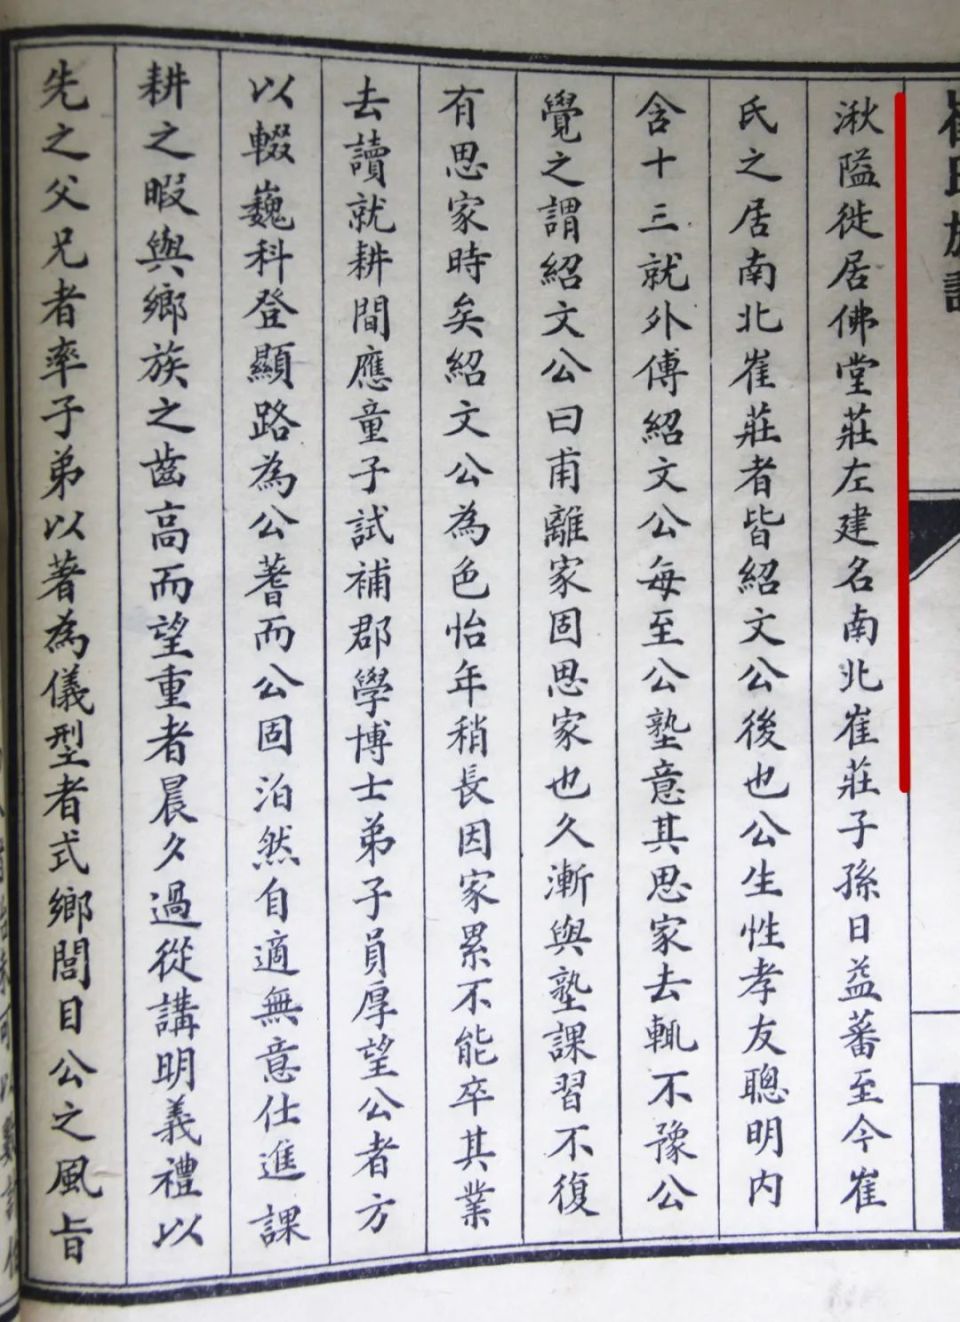 崔氏族譜
湫隘徙居佛堂莊左建名南北崔莊子孫日益蕃至今崔
氏之居南北崔莊者皆紹文公後也公生性孝友聰明內
含十三就外傅紹文公每至公塾意其思家去輒不豫公
覺之謂紹文公曰甫離家固思家也久漸與塾課習不復
有思家時矣紹文公為色怡年稍長因家累不能卒其業
去讀就耕間應童子試補郡學博士弟子員厚望公者方
以輟巍科登顯路為公蓍而公固泊然自適無意仕進課
耕之暇與鄉族之齒高而望重者晨夕過從講明義禮以
先之父兄者率子弟以著為儀型者式鄉閭目公之風旨